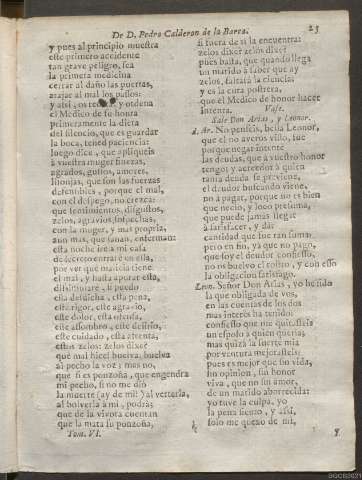 De D. Pedro Calderon de la Barca.
23
y pues al principio muestra
este primero accidente
tan grave peligro, sea
la primera medicina
cerrar al daño las puertas,
atajar al mal los passos:
y assi, os ordena
el Medico de su honra
primeramente la dieta
del silencio, que es guardar
la boca, tened paciencia:
luego dice, que apliqueis
à vuestra muger finezas,
agrados, gustos, amores,
lisonjas, que son las fuerzas
defensibles, porque el mal,
con el despego, no crezca:
que sentimientos, disgustos,
zelos, agravios, sospechas,
con la muger, y mas propria,
aun mas, que sanan, enferman:
esta noche irè à mi casa
de secreto entrarè en ella,
por ver que malicia tiene
el mal, y hasta apurar esta,
dissimularè, si puedo
esta desdicha, esta pena,
este rigor, este agravio,
este dolor, esta ofensa,
este assombro, este delirio,
este cuidado, esta afrenta,
estos zelos: zelos dixe?
què mal hice! buelva, buelva
al pecho la voz: mas no,
que si es ponzoña, que engendra
mi pecho, si no me diò
la muerte (ay de mi!) al verterla,
al bolverla à mi, podrà;
que de la vivora cuentan
que la mata su ponzoña,
Tom. VI.
si fuera de si la encuentra:
zelos dixe? zelos dixe?
pues basta, que quando llega
un marido à saber que ay
zelos, faltarà la ciencia;
y es la cura postrera,
que el Medico de honor hacer
intenta. Vase.
Sale Don Arias, y Leonor.
d. Ar. No penseis, bella Leonor,
que el no averos visto, fue
porque negar intentè
las deudas, que à vuestro honor
tengo; y acreedor à quien
tanta deuda se previene,
el deudor buscando viene,
no à pagar, porque no es bien
que necio, y loco presuma,
que puede jamàs llegar
à satisfacer, y dar
cantidad que fue tan suma:
pero en fin, ya que no pago,
que soy el deudor confiesso,
no os buelvo el rostro, y con esso
la obligacion satisfago.
Leon. Señor Don Arias, yo he sido
la que obligada de vos,
en las cuentas de los dos
mas interès ha tenido:
confiesso que me quitasteis
un esposo à quien queria;
mas quizà la suerte mia
por ventura mejorasteis;
pues es mejor que sin vida,
sin opinion, sin honor
viva, que no sin amor,
de un marido aborrecida:
yo tuve la culpa, yo
la pena siento, y assi,
solo me quexo de mi,